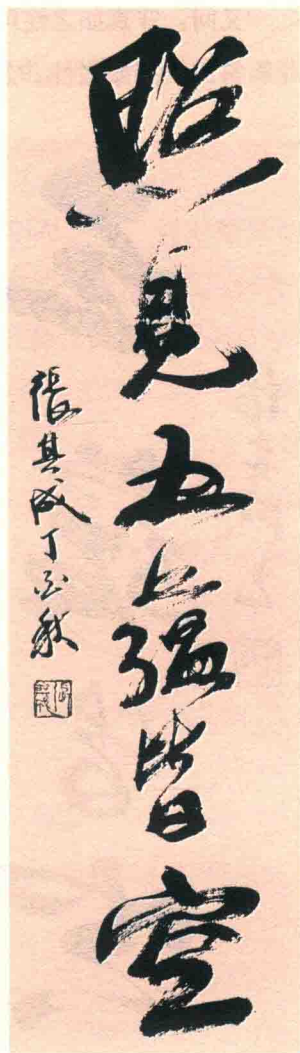 照見五蘊皆空
張其成丁亥秋